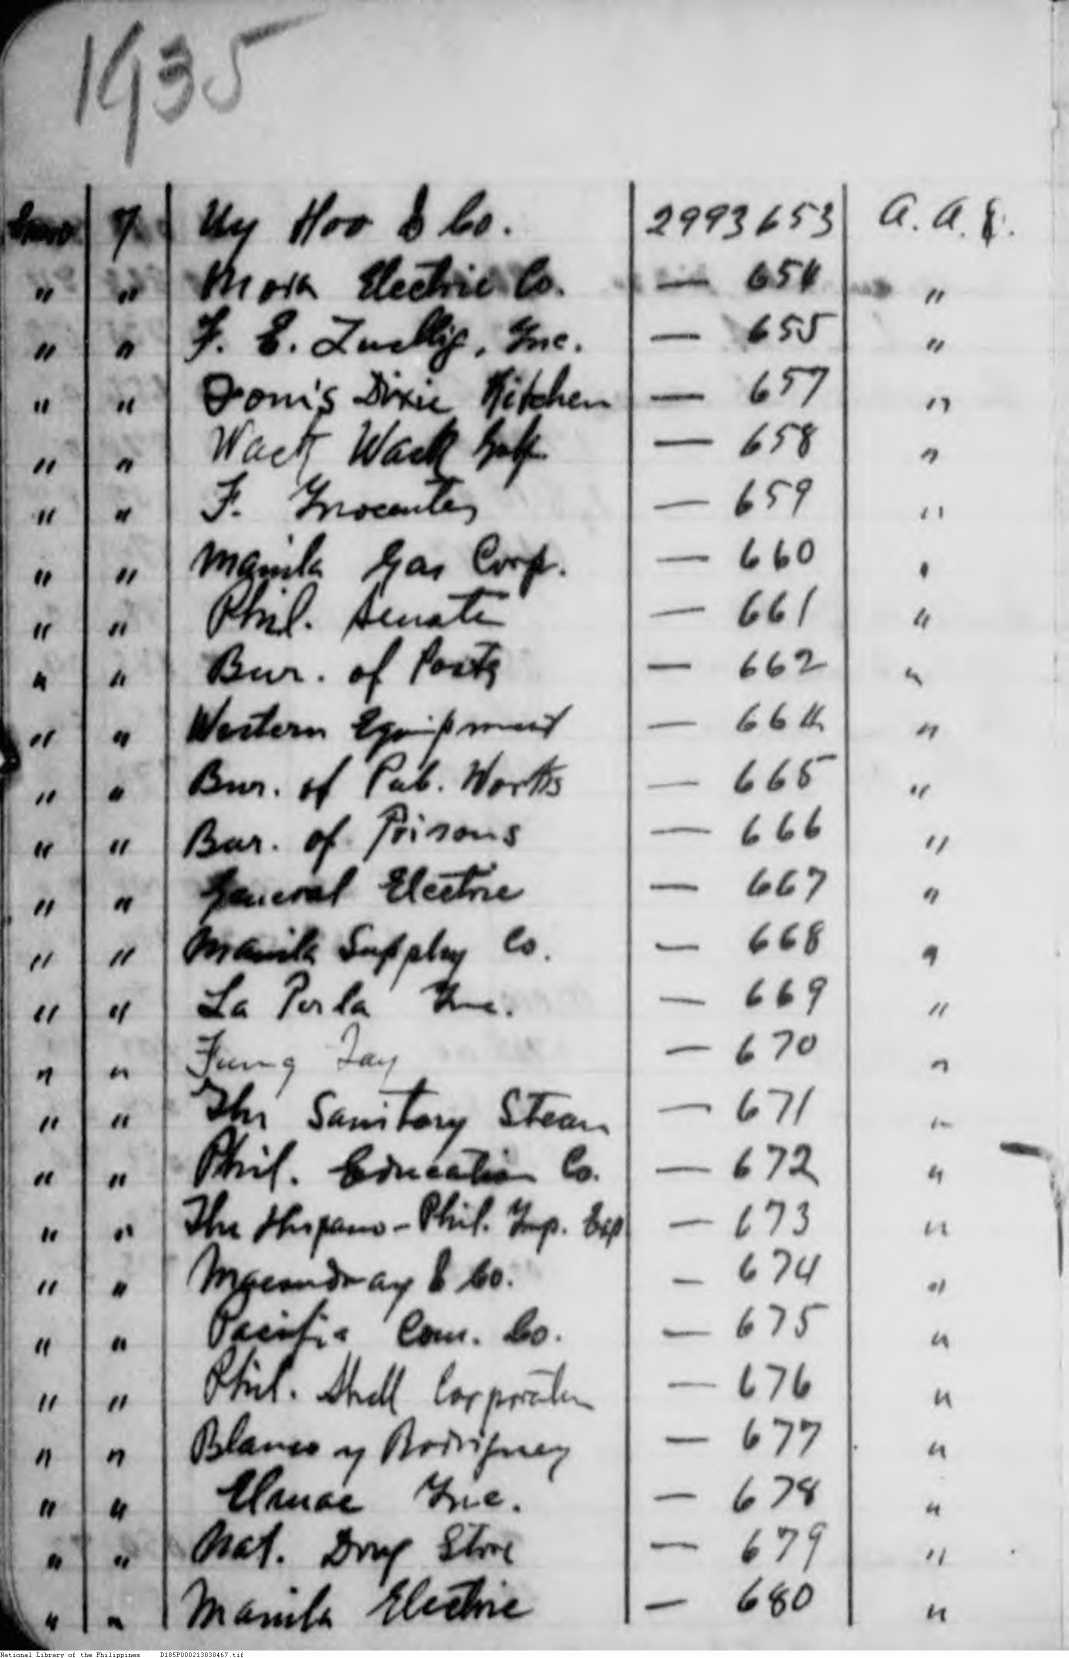 1935
Enero 7 Uy Hoo & Co. 2993653 A. A. &.
" " Mora Electric Co. — 654 "
" " F. E. Zuellig, Inc. — 655 "
" " Tom's Dixie Kitchen — 657 "
" " Wack Wack Golf — 658 "
" " F. Inocentes — 659 "
" " Manila Gas Corp. — 660 "
" " Phil. Senate — 661 "
" " Bur. of Posts — 662 "
" " Western Equipment — 664 "
" " Bur. of Pub. Works — 665 "
" " Bur. of Prisons — 666 "
" " General Electric — 667 "
" " Manila Supply Co. — 668 "
" " La Perla Inc. — 669 "
" " Fung Tay — 670 "
" " The Sanitary Steam — 671 "
" " Phil. Education Co. — 672 "
" " The Hispano-Phil. Imp. Exp — 673 "
" " Macondray & Co. — 674 "
" " Pacific Com. Co. — 675 "
" " Phil. Shell Corporation — 676 "
" " Blanco y Rodriguez — 677 "
" " Elmac Inc. — 678 "
" " Nat. Drug Store — 679 "
" " Manila Electric — 680 "
National Library of the Philippines D185P000213838467.tif